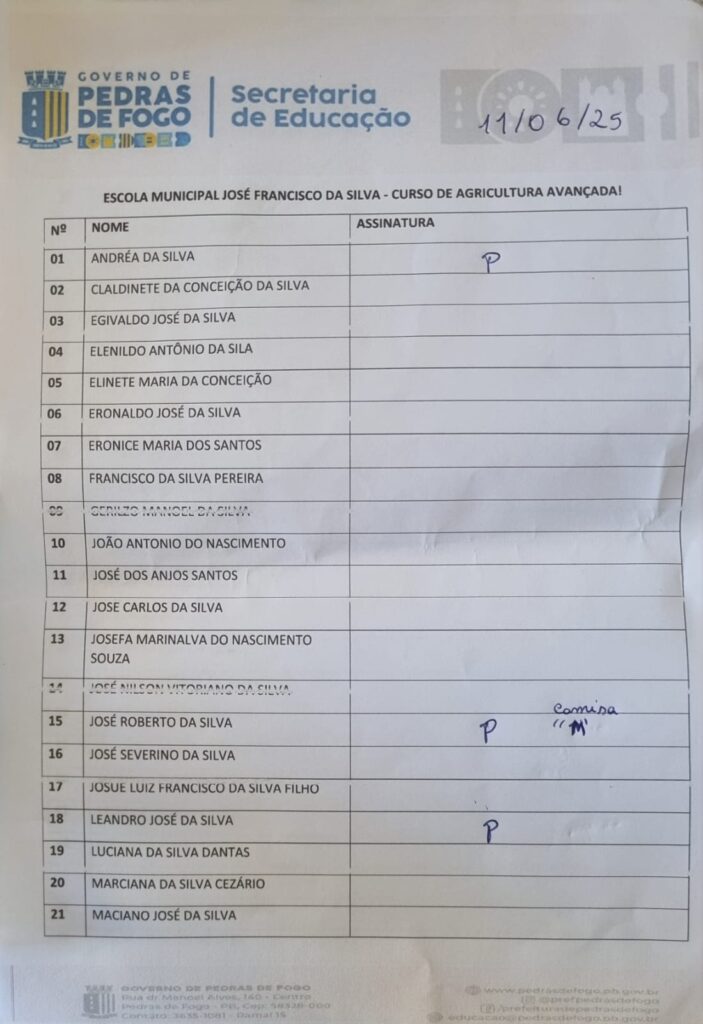 GOVERNO DE
PEDRAS
DE FOGO
Secretaria
de Educação
11/06/25
ESCOLA MUNICIPAL JOSÉ FRANCISCO DA SILVA - CURSO DE AGRICULTURA AVANÇADA!
Nº NOME ASSINATURA
01 ANDRÉA DA SILVA P
02 CLALDINETE DA CONCEIÇÃO DA SILVA
03 EGIVALDO JOSÉ DA SILVA
04 ELENILDO ANTÔNIO DA SILA
05 ELINETE MARIA DA CONCEIÇÃO
06 ERONALDO JOSÉ DA SILVA
07 ERONICE MARIA DOS SANTOS
08 FRANCISCO DA SILVA PEREIRA
09 GERILZO MANOEL DA SILVA
10 JOÃO ANTONIO DO NASCIMENTO
11 JOSÉ DOS ANJOS SANTOS
12 JOSE CARLOS DA SILVA
13 JOSEFA MARINALVA DO NASCIMENTO
SOUZA
14 JOSÉ NILSON VITORIANO DA SILVA
Camisa
15 JOSÉ ROBERTO DA SILVA P "M"
16 JOSÉ SEVERINO DA SILVA
17 JOSUE LUIZ FRANCISCO DA SILVA FILHO
18 LEANDRO JOSÉ DA SILVA P
19 LUCIANA DA SILVA DANTAS
20 MARCIANA DA SILVA CEZÁRIO
21 MACIANO JOSÉ DA SILVA
GOVERNO DE PEDRAS DE FOGO
Rua dr Manoel Alves, 140 - Centro
Pedras de Fogo - PB, Cep: 58328-000
Contato: 3635-1081 - Ramal 15
www.pedrasdefogo.pb.gov.br
@prefpedrasdefogo
/prefeituradepedrasdefogo
educacao@pedrasdefogo.pb.gov.br